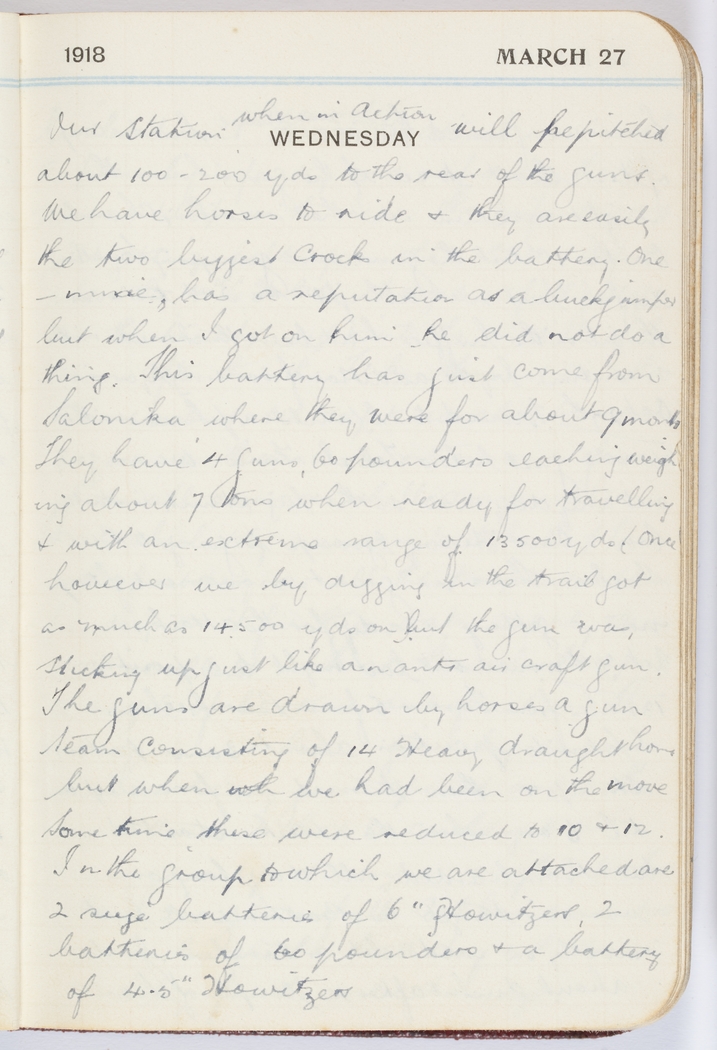 1918 MARCH 27
Our station when in Action will be pitched
WEDNESDAY
about 100 - 200 yds to the rear of the guns.
We have horses to ride & they are easily
the two biggest Crocks in the battery. One
- mine, has a reputation as a buckjumper
but when I got on him he did not do a
thing. This battery has just come from
Salonika where they were for about 9 months
They have 4 guns, 60 pounders each weigh
ing about 7 tons when ready for travelling
& with an extreme range of 13500 yds (Once
however we by digging in the trail got
as much as 14.500 yds on) but the gun was,
sticking up just like an anti air craft gun.
The guns are drawn by horses a gun
team consisting of 14 Heavy draught horses
but when we had been on the move
some time these were reduced to 10 & 12.
In the group to which we are attached are
2 siege batteries of 6" Howitzers, 2
batteries of 60 pounders & a battery
of 4.5" Howitzers